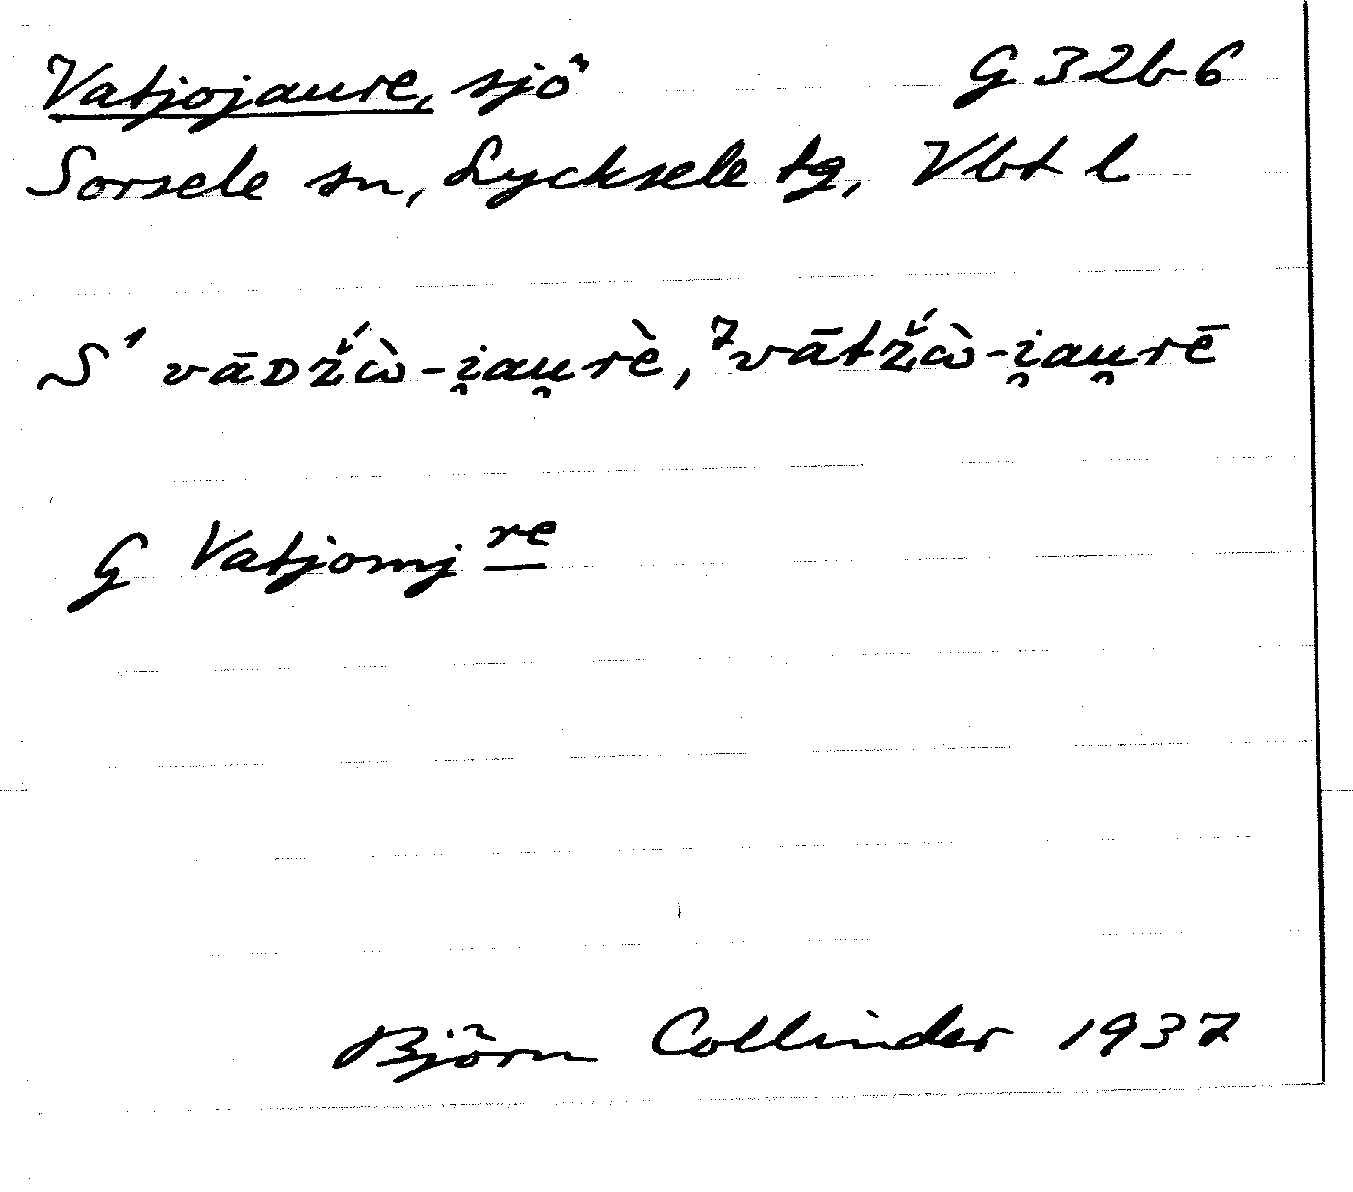 Vatjojaure, sjö G 32b-6
Sorsele sn, Lycksele tg, Vbt l
S¹ vāᴅž́ὼ-i̯au̯rè, ⁷vātž́ὼ-i̯au̯rē
G Vatjomj re
Björn Collinder 1937